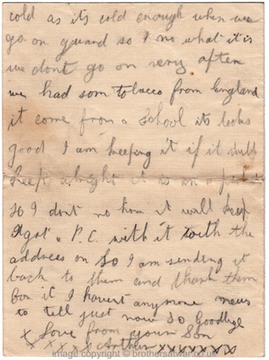 cold as its cold enough when we
go on guard so I no what it is
we dont go on very often
we had som tobacco from England
it come from a School its looks
good I am keeping it if it will
keep alright it is an
so I dont no how it will keep
I got a P.C. with it with the
address on So I am sending it
back to them and thank them
for it I havent anymore news
to tell just now So goodbye
Love from your Son
x x x x Arthur x x x x x x x
image copyright © brothersinwar.